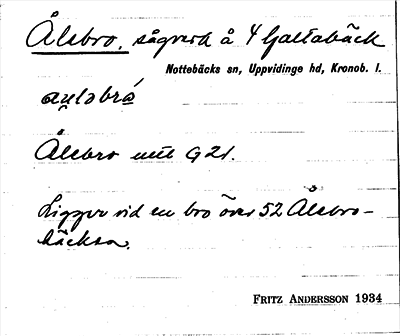 Ålebro, sågverk å 4 Hjaltabäck
Nottebäcks sn, Uppvidinge hd, Kronob. l.
Ålebro utt G21.
Ligger vid en bro över 52 Ålebro-
bäcken.
FRITZ ANDERSSON 1934